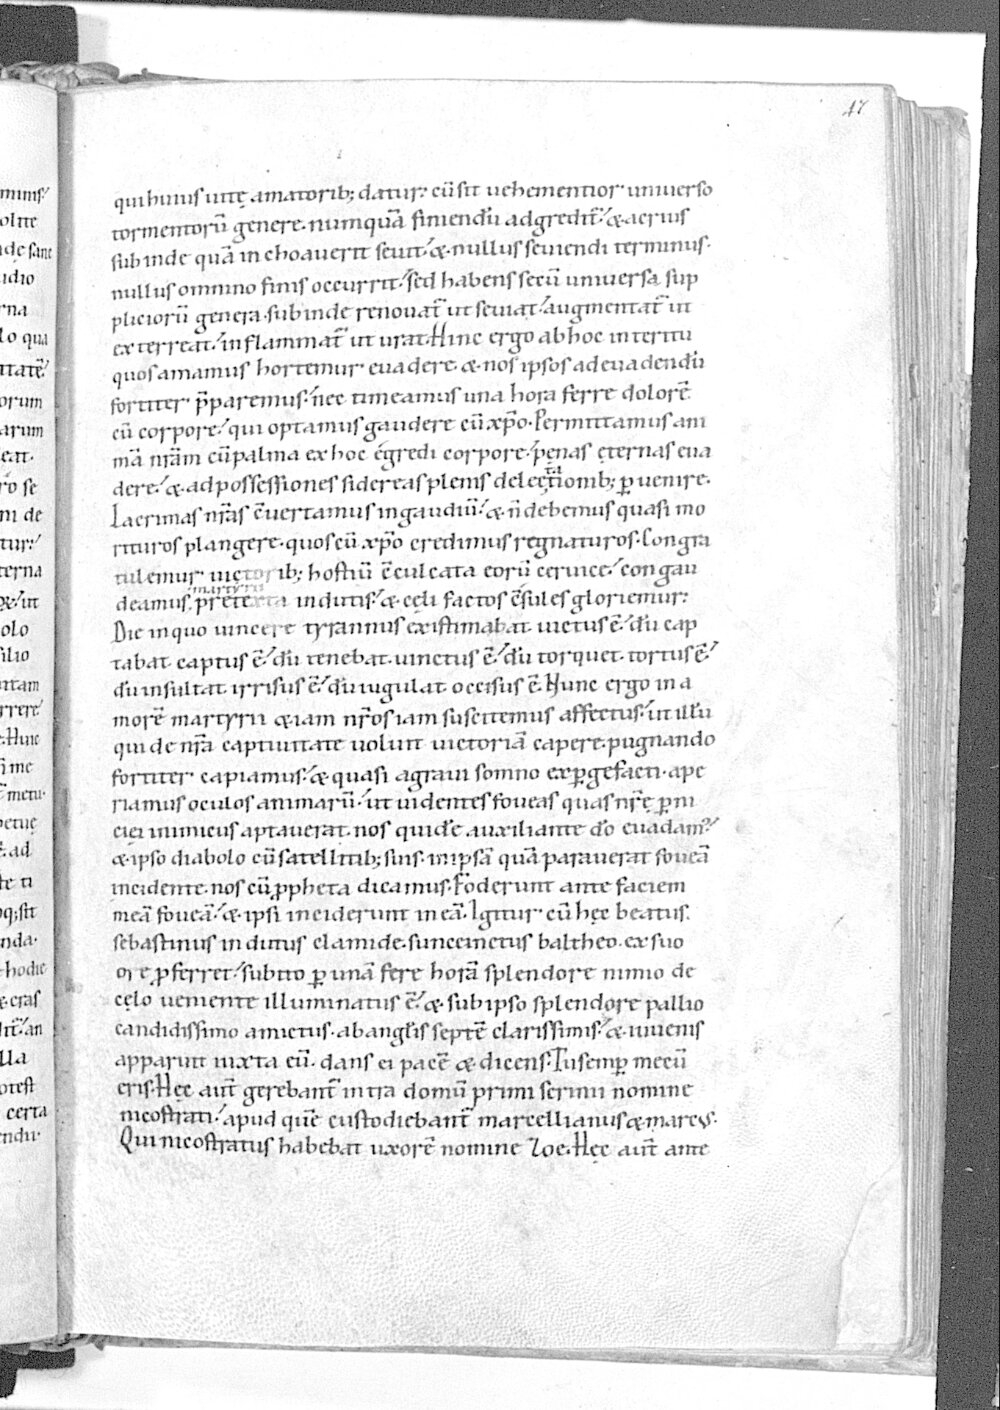 47
quihuius uitę amatorib; datur. cū sit uehementior uniuerso
tormentorū genere. numquā finiendū adgredit̄. & acrius
subinde quā inchoauerit seuit. & nullus seuiendi terminus.
nullus omnino finis occurrit. sed habens secū uniuersa sup
pliciorū genera. subinde renouat̄ ut seuiat. augmentat̄ ut
exterreat. inflammat̄ ut urat. Hinc ergo ab hoc interitu
quos amamus hortemur euadere. & nos ipsos ad euadendū
fortiter p̄paremus. nec timeamus una hora ferre dolorē
cū corpore. qui optamus gaudere cū xp̄o. Permittamus ani
mā nr̄am cū palma ex hoc egredi corpore. pęnas ęternas eua
dere. & ad possessiones sidereas plenis delectationib; ꝑuenire.
Lacrimas nr̄as ēuertamus in gaudiū. & n̄ debemus quasi mo
rituros plangere. quos cū xp̄o credimus regnaturos. Congra
tulemur uictorib; hostiū ēculcata eorū ceruice. congau
deamus martyrii pretexta indutis. & cęli factos ēsules gloriemur.
Die in quo uincere tyrannus existimabat uictus ē. dū cap
tabat captus ē. dū tenebat. uinctus ē. dū torquet. tortus ē.
dū insultat irrisus ē. dū iugulat occisus ē. Hunc ergo in a
morē martyrii & iam nr̄os iam suscitemus affectus. ut illū
qui de nr̄a captiuitate uoluit uictoriā capere. pugnando
fortiter capiamus. & quasi a graui somno exꝑgefacti. ape
riamus oculos animarū. ut uidentes foueas quas nr̄ę ꝑni
ciei inimicus aptauerat. nos quidē auxiliante dō euadam᷒.
& ipso diabolo cū satellitib; suis. in ipsā quā parauerat foueā
incidente. nos cū ꝓpheta dicamus. Foderunt ante faciem
meā foueā. & ipsi inciderunt in eā. Igitur cū hęc beatus
sebastinus indutus clamide. succinctus baltheo. ex suo
ore ꝓferret. subito ꝑ unā fere horā splendore nimio de
cęlo ueniente illuminatus ē. & sub ipso splendore pallio
candidissimo amictus. ab anglis septē clarissimis. & iuuenis
apparuit iuxta eū. dans ei pacē & dicens. Tu semꝑ mecū
eris. Hęc aut̄ gerebant̄ intra domū primi serinii nomine
nicostrati. apud quē custodiebant̄ marcellianus & marcus.
Qui nicostratus habebat uxorē nomine Zoe. Hęc aut̄ ante